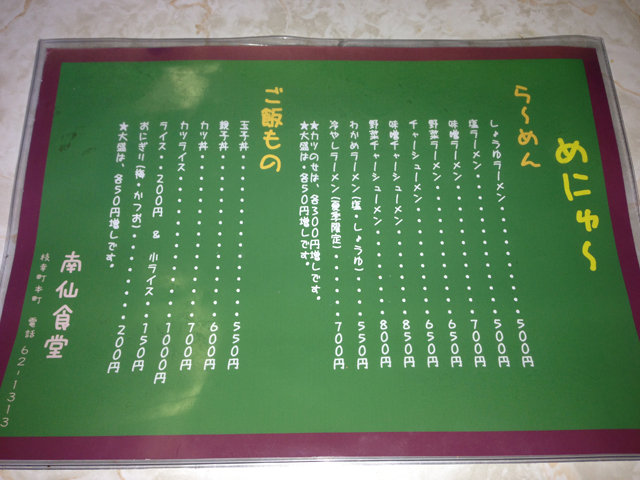 めにゅ～
ら～めん
しょうゆラーメン・・・・・・・・・500円
塩ラーメン・・・・・・・・・・・・500円
味噌ラーメン・・・・・・・・・・・700円
野菜ラーメン・・・・・・・・・・・650円
チャーシューメン・・・・・・・・・650円
味噌チャーシューメン・・・・・・・850円
野菜チャーシューメン・・・・・・・800円
わかめラーメン(塩・しょうゆ)・・・550円
冷やしラーメン(夏季限定)・・・・・700円
★カツのせは、各300円増しです。
★大盛は、各50円増しです。
ご飯もの
玉子丼・・・・・・・・・・・・・・550円
親子丼・・・・・・・・・・・・・・600円
カツ丼・・・・・・・・・・・・・・700円
カツライス・・・・・・・・・・・・1000円
ライス・・200円 & 小ライス・・・150円
おにぎり(梅・かつお)・・・・・・・200円
★大盛は、各50円増しです。
南仙食堂
枝幸町本町 電話 62-1313